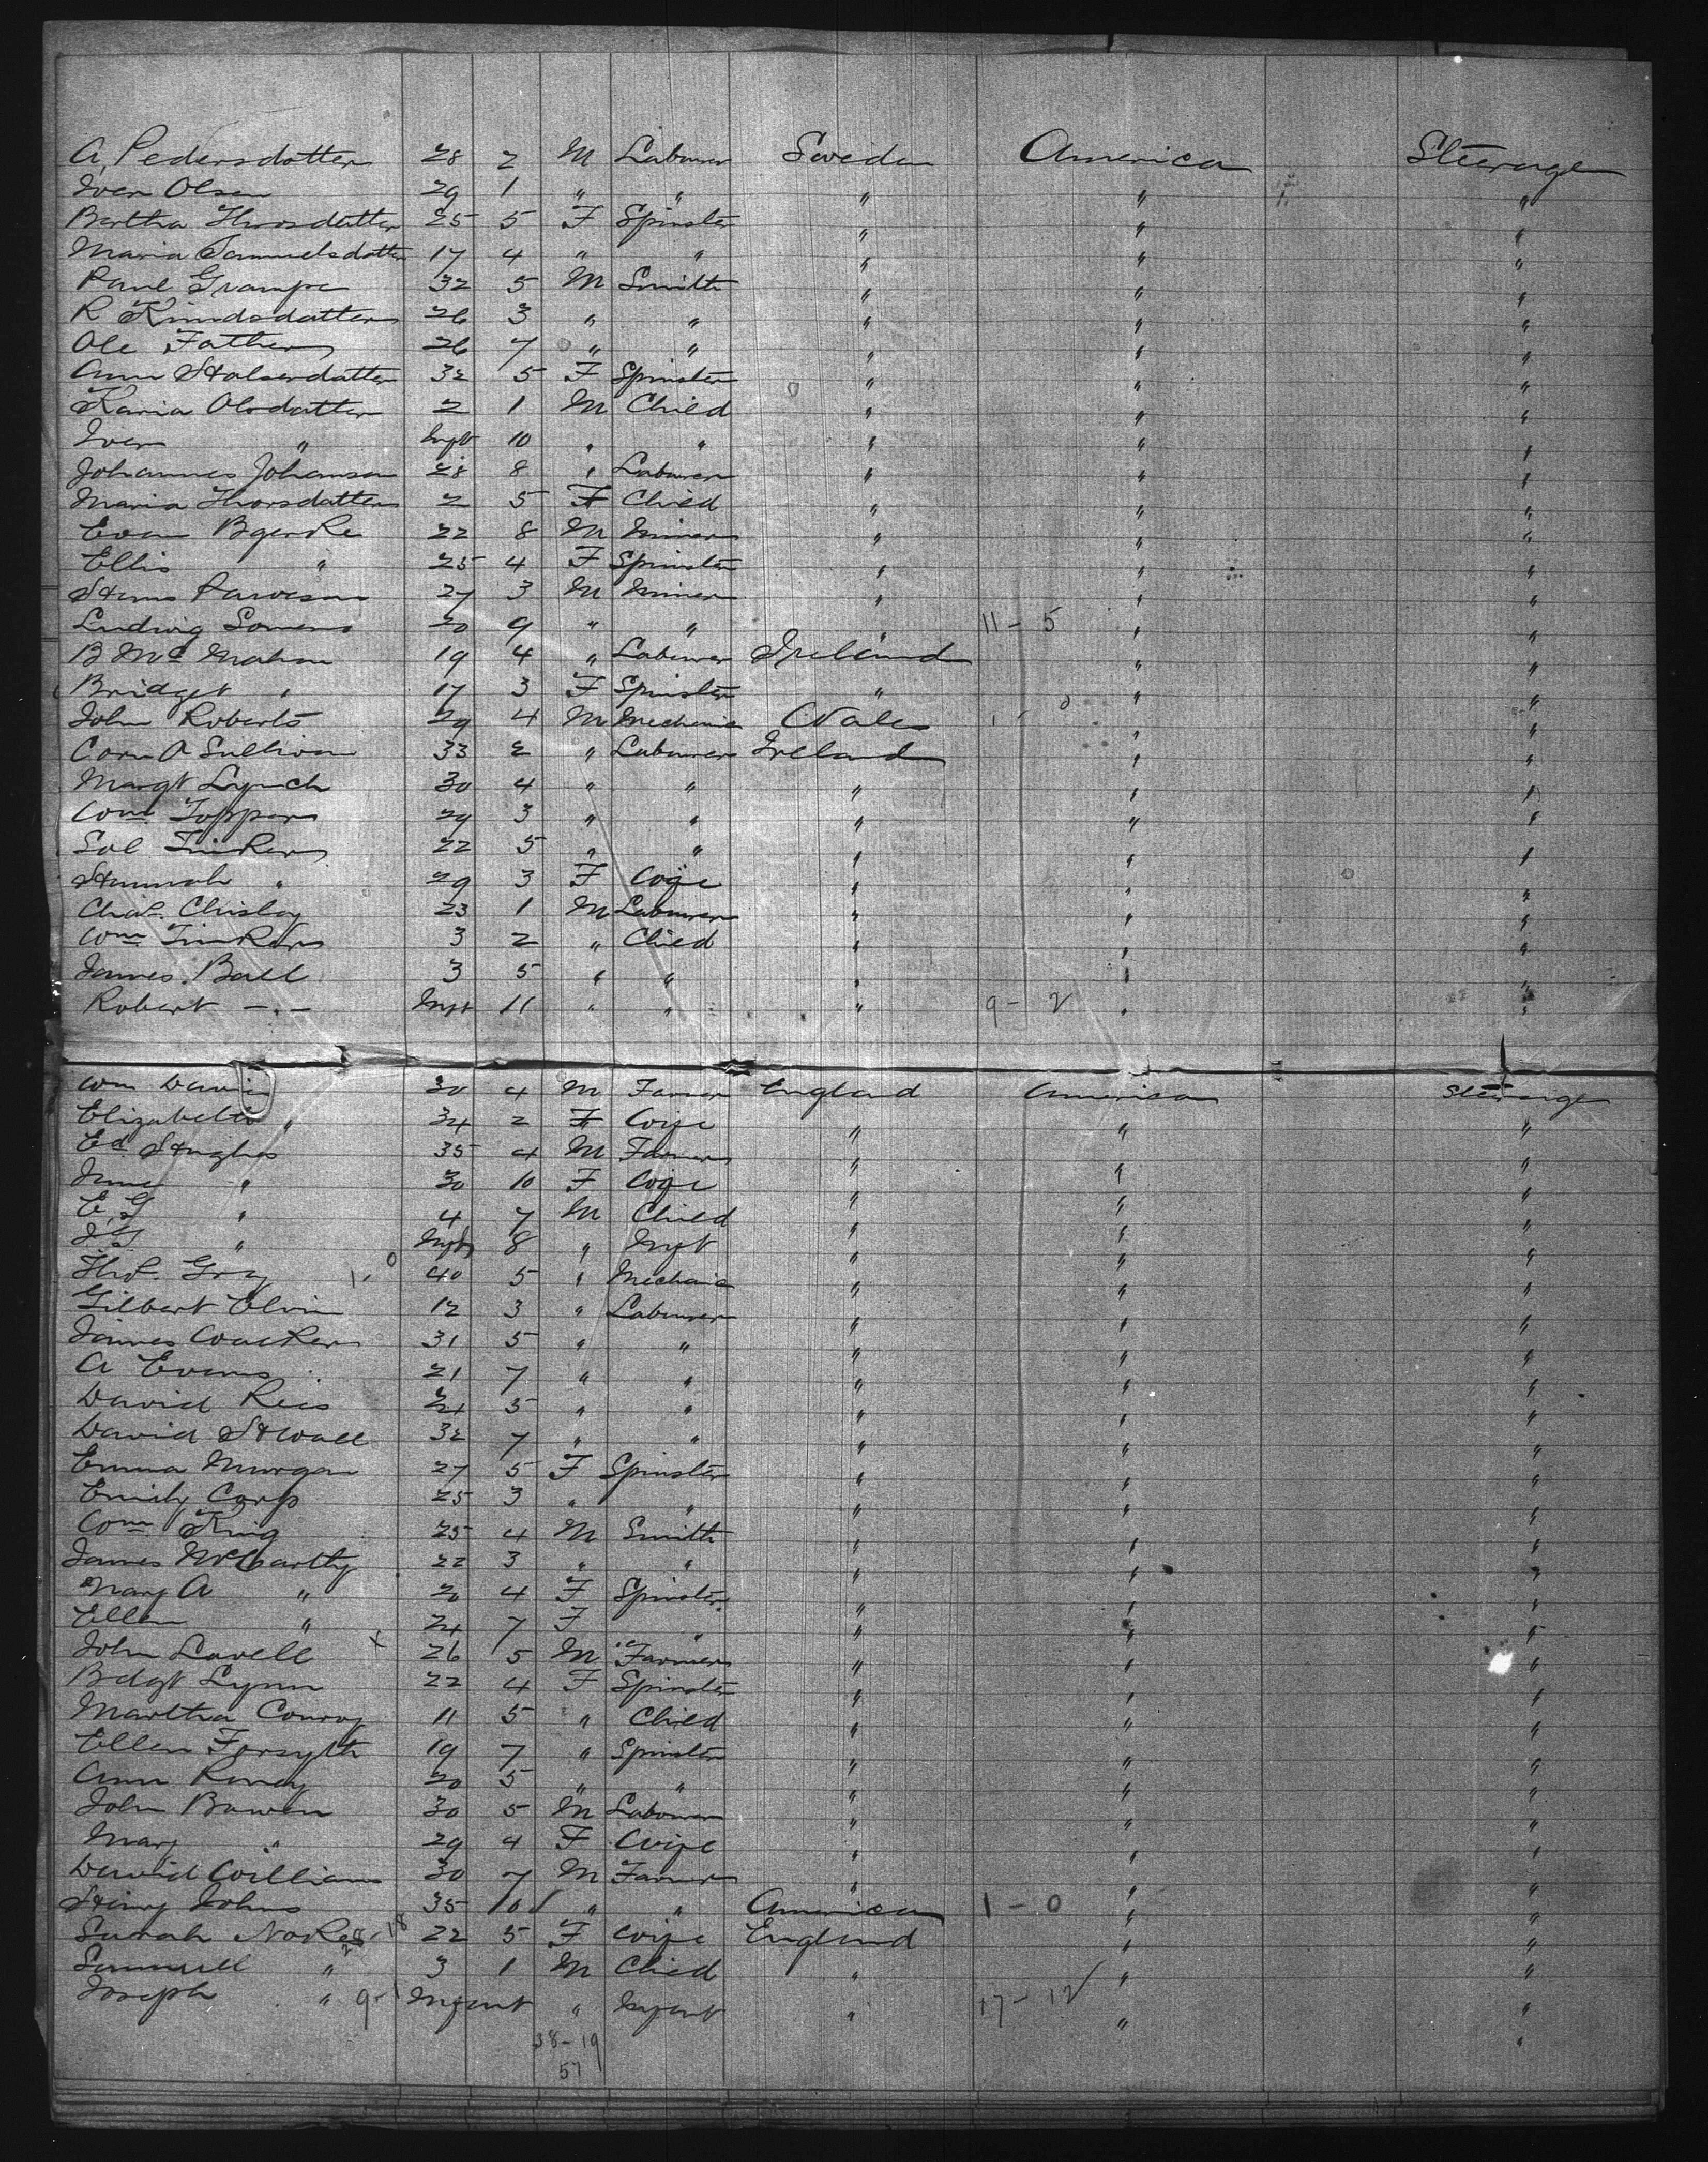 A, Pedersdatter 28 2 M Labourer Sweden America Steerage
Iver Olsen 29 1 " " " " "
Bertha Thorsdatter 25 5 F Spinster " " "
Maria Samuelsdatter 17 4 " " " " "
Paul Grampe 32 5 M Smith " " "
R Knudsdatter 26 3 " " " " "
Ole Father 26 7 " " " " "
Ann Halserdatter 32 5 F Spinster " " "
Karia Olsdatter 2 1 M Child " " "
Iver " Inft 10 " " " " "
Johannes Johanson 28 8 " Labourer " " "
Maria Thorsdatter 2 5 F Child " " "
Evan Bgerke 22 8 M Miner " " "
Ellis " 25 4 F Spinster " " "
Hans 27 3 M Miner " " "
Ludwig Somers 20 9 " " " 11 - 5 " "
B McMahon 19 4 " Labourer Ireland " "
Bridget " 17 3 F Spinster " " "
John Roberts 29 4 M Mechanic Wales 1 - 0 " "
Corn O Sullivan 33 2 " Labourer Ireland " "
Margt Lynch 30 4 " " " " "
Wm Toppers 29 3 " " " " "
Sol Tinkers 22 5 " " " " "
Hannah " 29 3 F Wife " " "
Chas. Chisloy 23 1 M Labourer " " "
Wm Tinkers 3 2 " Child " " "
James Ball 3 5 " " " " "
Robert - " - Inft 11 " " " 9 - 2 " "
Wm Davies 30 4 M Farmer England America Steerage
Elizabeth " 34 2 F Wife " " "
Ed Hughes 35 4 M Farmer " " "
Jane " 30 10 F Wife " " "
E G " 4 7 M Child " " "
J G " Inft 8 " Inft " " "
Thos. Gray 1 - 0 40 5 " Mechanic " " "
Gilbert Elvin 12 3 " Labourer " " "
James Walker 31 5 " " " " "
A Evans 21 7 " " " " "
David Reis 24 5 " " " " "
David Hwall 32 7 " " " " "
Emma Morgan 27 5 F Spinster " " "
Emily Corp 25 3 " " " " "
Wm King 25 4 M Smith " " "
James McCarthy 22 3 " " " " "
Mary A " 20 4 F Spinster " " "
Ellen " 24 7 F " " " "
John Lavell x 26 5 M Farmer " " "
Bdgt Lynn 22 4 F Spinster " " "
Martha Conroy 11 5 " Child " " "
Ellen Forsyth 19 7 " Spinster " " "
Ann Roney 20 5 " " " " "
John Bowen 30 5 M Labourer " " "
Mary " 29 4 F Wife " " "
David William 30 7 M Farmer " " "
Henry Johns 35 10 " " America 1 - 0 " "
Sarah Nokes 28 - 18 22 5 F Wife England " "
Sammuell " 3 1 M Child " " "
Joseph " 9 - 1 Infant " Infant " 17 - 12 " "
38 - 19
57